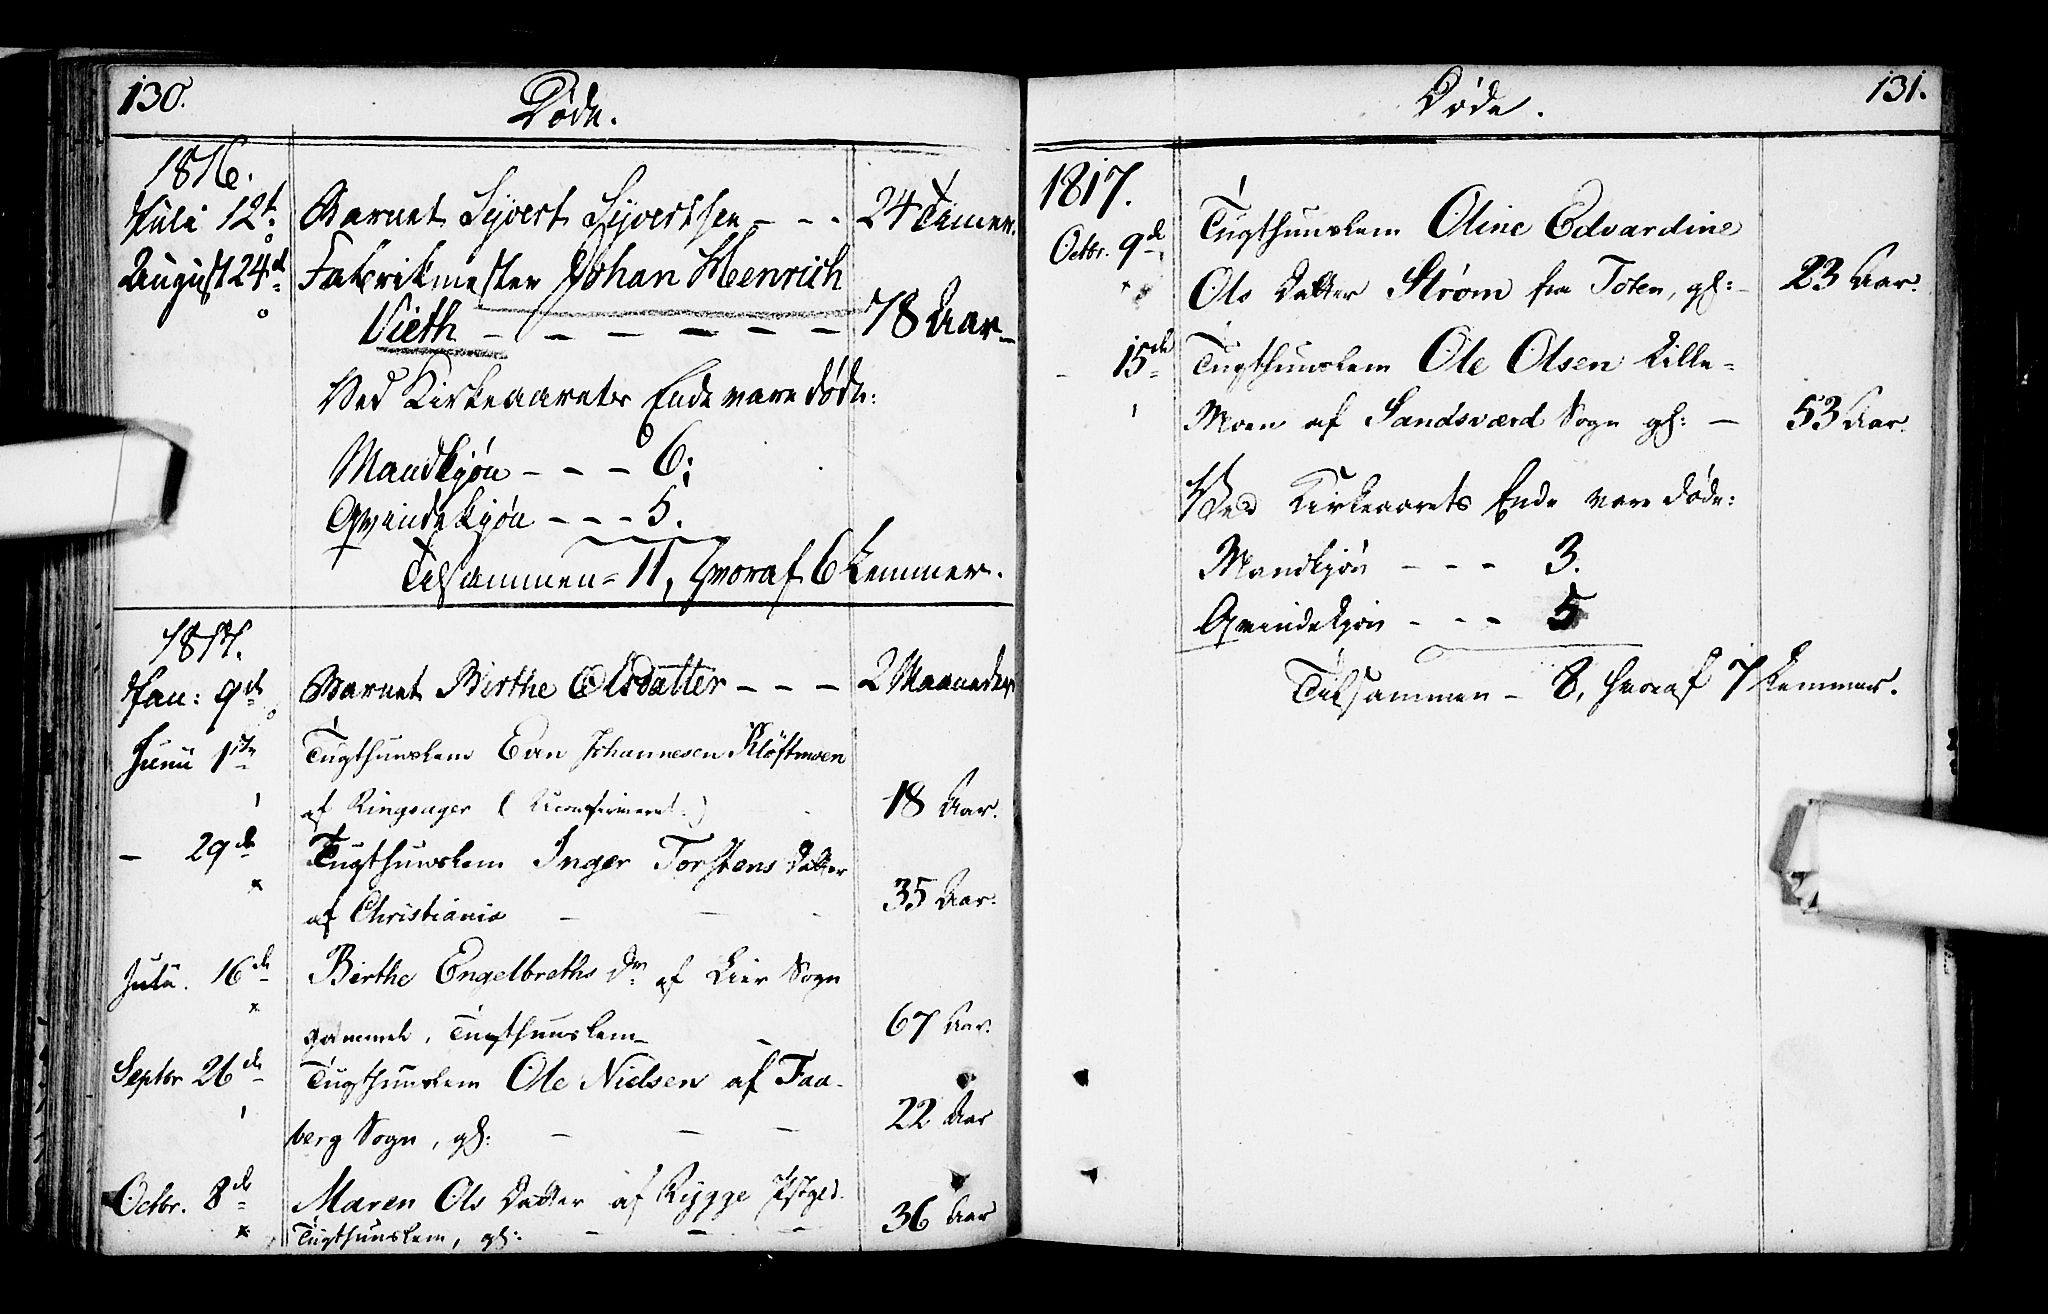 130.
Døde.
1816.
Juli 12t
Barnet Syvert Syvertsen - - -
24 Timer.
August 24d
Fabrikmester Johan Henrich
Vieth - - - - - -
78 Aar -
Ved Kirkeaarets Ende vare døde:
Mandkjøn - - - 6;
Qvindekjøn - - - 5.
Tilsammen = 11, hvoraf 6 Lemmer.
1817.
Jan: 9d
Barnet Birthe Olsdatter - - -
2 Maaneder
Junii 1ste
Tugthuuslem Even Johannesen Kløftmoen
af Ringsager (Uconfirmeret.)
18 Aar.
- 29de
Tugthuuslem Inger Torstens Datter
af Christiania - - -
35 Aar.
Julii. 16de
Birthe Engelbreths Dr af Lier Sogn
gammel, Tugthuuslem -
67 Aar.
Septbr 26de
Tugthuuslem Ole Nielsen af Faa-
berg Sogn, gl: - - -
22 Aar
Octbr. 8de
Maren Ols Datter af Rygge Pstgd.
Tugthuuslem, gl: - - -
36 Aar
Døde.
131.
1817.
Octbr. 9de
Tugthuuslem Oline Edvardine
Ols Datter Strøm fra Toten, gl: -
23 Aar.
- 15de
Tugthuuslem Ole Olsen Lille-
Moen af Sandsværd Sogn gl: -
53 Aar.
Ved Kirkeaarets Ende vare døde:
Mandkjøn - - - 3.
Qvindekjøn - - - 5
Tilsammen - 8, hvoraf 7 Lemmer.